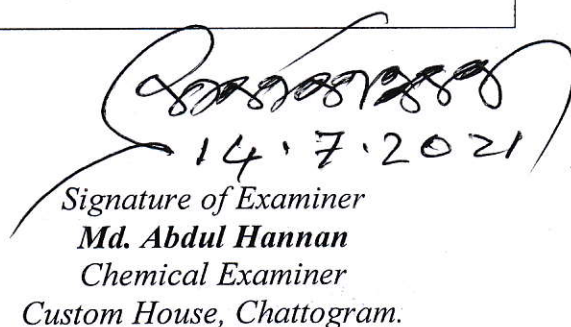 14.7.2021
Signature of Examiner
Md. Abdul Hannan
Chemical Examiner
Custom House, Chattogram.